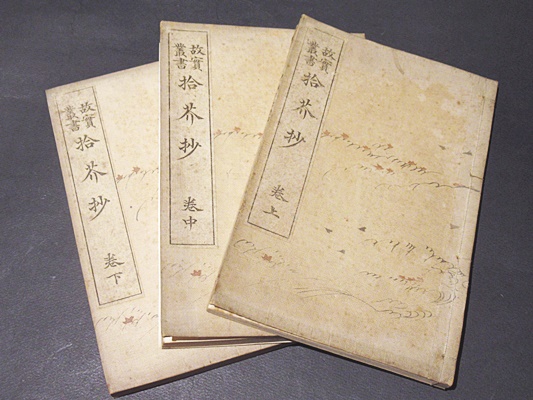 故實叢書
拾芥抄
卷上
故實叢書
拾芥抄
卷中
故實叢書
拾芥抄
卷下